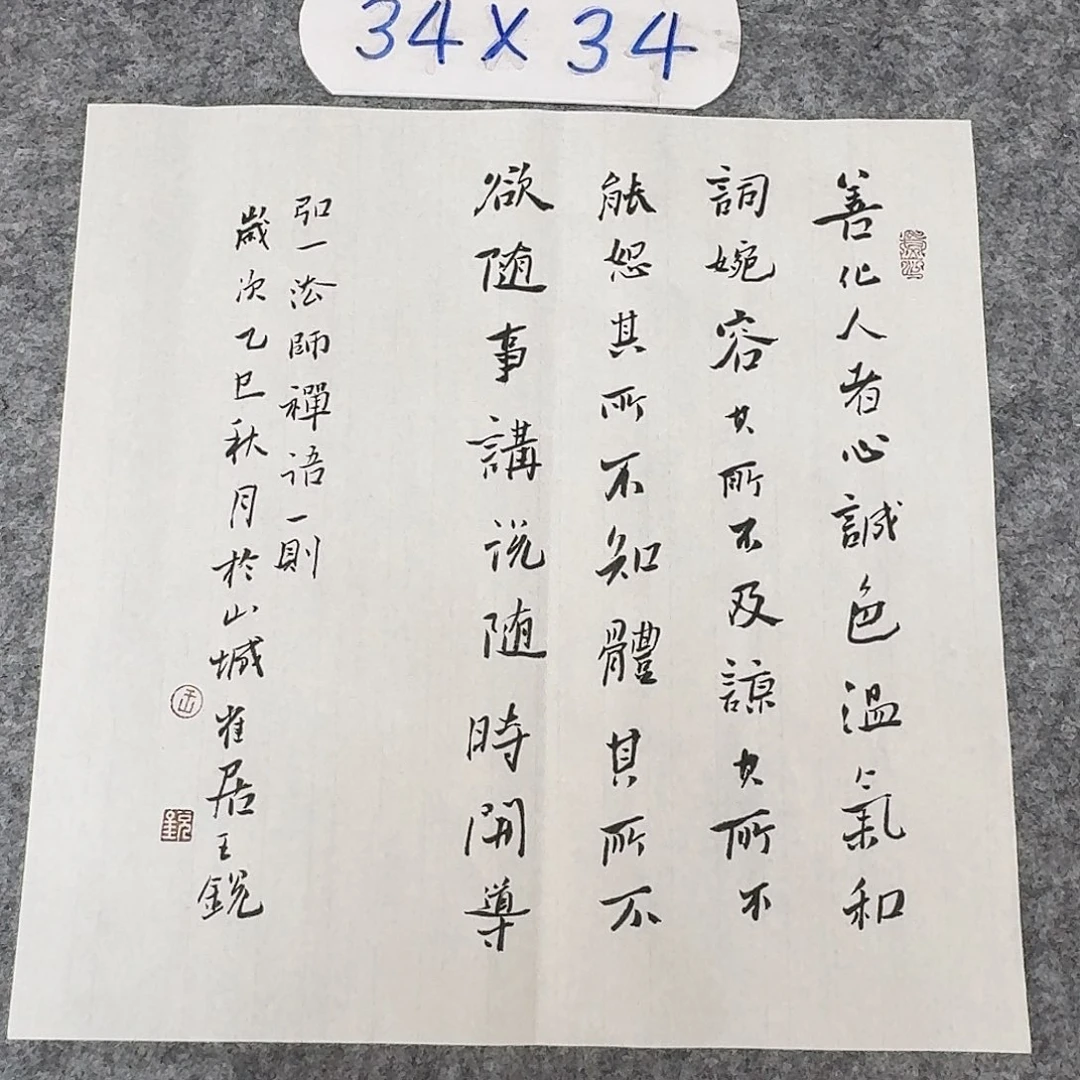 34X34
善化人者心誠色溫氣和
詞婉容其所不及諒其所不
能恕其所不知體其所不
欲随事講说随時開導
弘一法師禪语一則
歲次乙巳秋月於山城雀居王銳